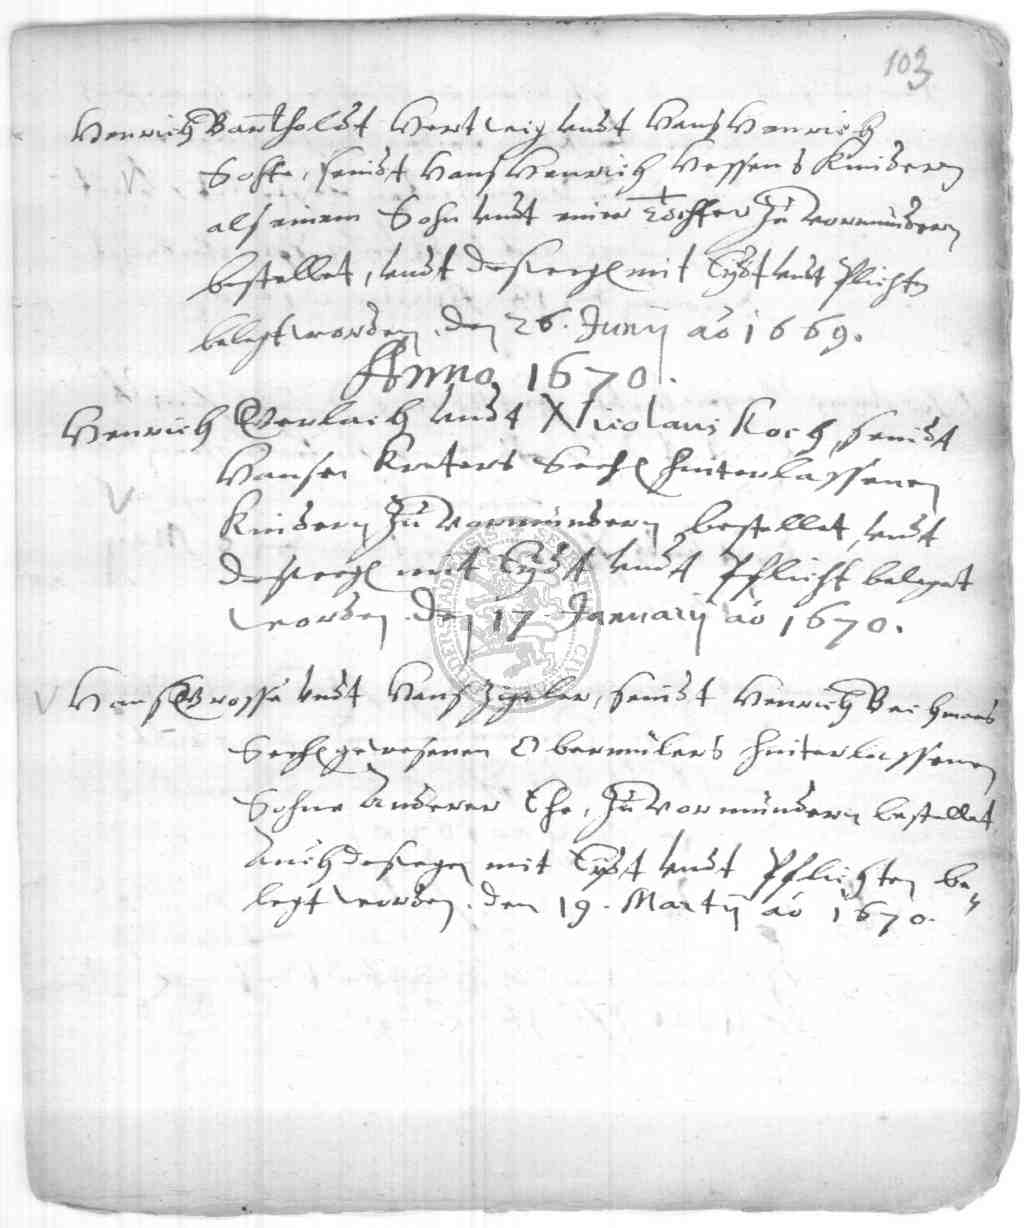 103
Henrich Bartholdt Hertwig undt Hans Henrich
Sohte, seindt Hans Henrich Hessens Kindern
als einem Sohn undt einer Tochter zu vormündern
bestellet, undt desweg mit Eydt undt Plichte
belegt worden. den 26. Junij aõ 1669.
Anno 1670.
Henrich Gerlach undt Nicolaus Koch, seindt
Hansen Kresters Seel hinterlassenen
Kindern zu vormündern bestellet, undt
desweg mit Eydt undt Pflicht beleget
worden. den 17 Januarij aõ 1670.
Hans Grosse undt Hans Zigeler, seindt Henrich
Seel gewesenen Obermülers hinterlassenen
Sohne anderer Ehe, zu vormündern bestellet,
auch deswegen mit Eydt undt Pflichten be-
legt worden. den 19. Martij aõ 1670.